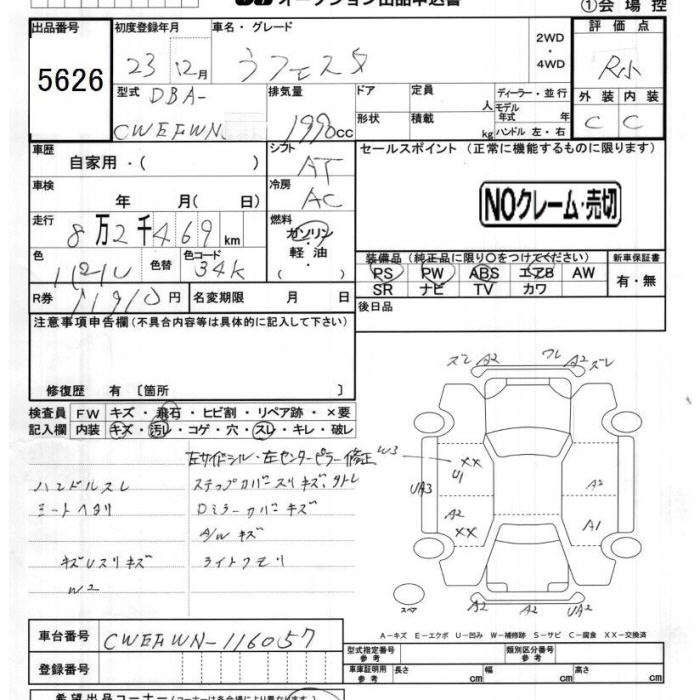 オークション出品申込書
①会場控
出品番号 初度登録年月 車名・グレード 2WD 評価点
5626 23 12月 ラフェスタ ・4WD R小
型式 DBA- 排気量 ドア 定員 人 ディーラー・並行 外装 内装
CWEFWN 1990cc 形状 積載 kg モデル年式 年 ハンドル 左・右 C C
車歴 シフト セールスポイント (正常に機能するものに限ります)
自家用・( ) AT
車検 冷房
年 月( 日) AC NOクレーム・売切
走行 燃料
8万2千469km ガソリン
色 色替 色コード 軽油 装備品(純正品に限り○をつけてください) 新車保証書
34K ・( ) PS PW ABS エアB AW 有・無
SR ナビ TV カワ
R券 11910円 名変期限 月 日 後日品
注意事項申告欄(不具合内容等は具体的に記入して下さい)
修復歴 有 〔箇所 〕
検査員 FW キズ・飛石・ヒビ割・リペア跡・×要
記入欄 内装 キズ・汚レ・コゲ・穴・スレ・キレ・破レ
左サイドシル・左センターピラー修正
ハンドルスレ ステップカバースリキズ,
シートヘタリ Dミラーカバーキズ
A/Wキズ
キズUスリキズ ライトクモリ
W2
ズレ A2 ワレ A2 ズレ
W3 XX
U1
UA3 A2 A2
XX A1
スペア A2 A2 UA2
A-キズ E-エクボ U-凹み W-補修跡 S-サビ C-腐食 XX-交換済
車台番号 CWEFWN-116057
登録番号
型式指定番号 参考 類別区分番号 参考
車庫証明用 参考 長さ cm 幅 cm 高さ cm
希望出品コーナー